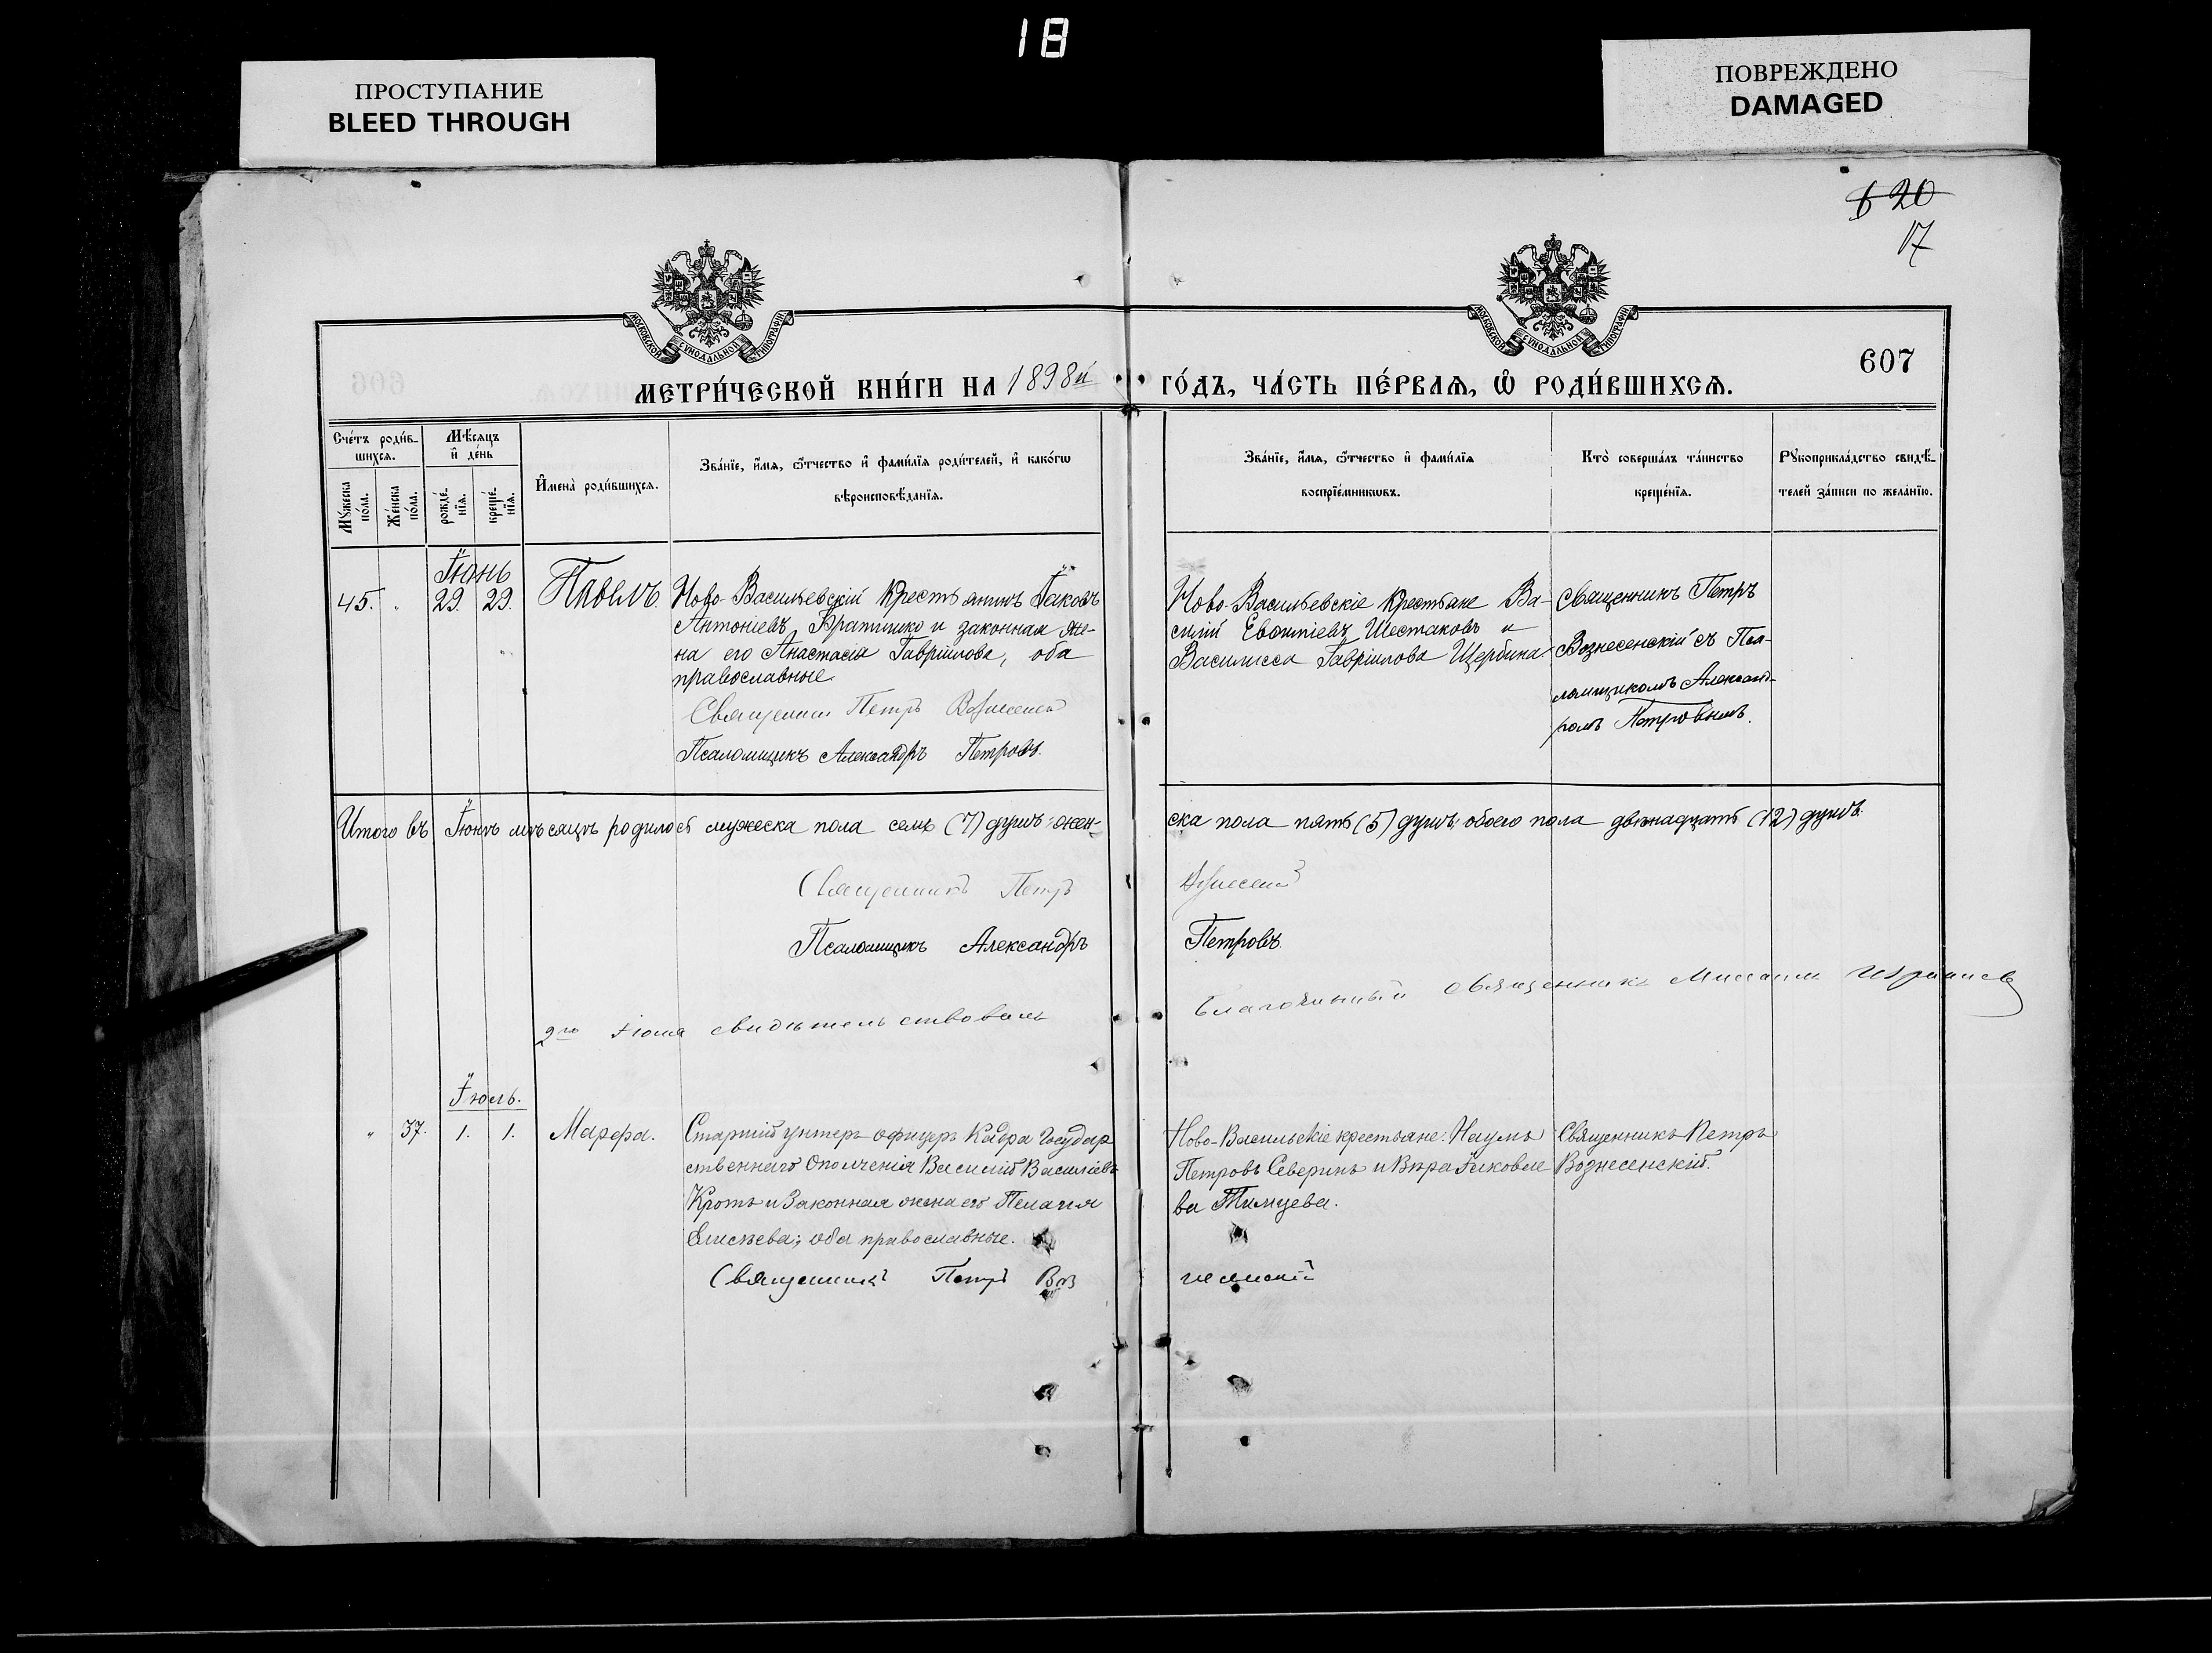 18
ПРОСТУПАНИЕ
BLEED THROUGH
ПОВРЕЖДЕНО
DAMAGED
20
17
МОСКОВСКОЙ СѴНОДАЛЬНОЙ ТИПОГРАФІИ
МОСКОВСКОЙ СѴНОДАЛЬНОЙ ТИПОГРАФІИ
607
МЕТРИ́ЧЕСКОЙ КНИ́ГИ НА 1898й ГО́ДЪ, ЧА́СТЬ ПЕ́РВАѦ, Ѡ҆ РОДИ́ВШИХСѦ.
Сче́тъ роди́в-
шихся.
Мѣ́сяцъ
и҆ де́нь
Му́жеска
по́ла.
Же́нска
по́ла.
рожде́-
нїѧ.
креще́-
нїѧ.
И҆мена̀ роди́вшихся.
Зва́нїе, и҆́мѧ, ѻ҆́тчество и҆ фами́лїѧ роди́телей, и҆ како́гѡ
вѣроисповѣ́данїѧ.
Зва́нїе, и҆́мѧ, ѻ҆́тчество и҆ фами́лїѧ
воспрїе́мникѡвъ.
Кто̀ соверша́лъ та́инство
креще́нїѧ.
Рꙋкоприкла́дство свидѣ́-
телей за́писи по жела́нїю.
Іюнь
45. „ 29. 29. Павелъ. Ново-Васильевскій Крестьянинъ Іаковъ
Антоніевъ Братишко и законная же-
на его Анастасія Гавріилова, оба
православные.
Священникъ Петръ Вознесенскій
Псаломщикъ Александръ Петровъ.
Ново-Васильевскіе Крестьане Ва-
силій Евѳиміевъ Шестаковъ и
Василисса Гавріилова Щербина
Священникъ Петръ
Вознесенскій съ Пса-
ломщикомъ Александ-
ромъ Петровымъ.
Итого въ Іюнѣ мѣсяцѣ родилось мужеска пола семь (7) душъ, жен-ска пола пять (5) душъ, обоего пола двѣнадцать (12) душъ.
Священникъ Петръ Вознесенскій
Псаломщикъ Александръ Петровъ.
2го Іюля свидѣтельствовалъ Благочинный священникъ Михаилъ
Іюль.
„ 37. 1. 1. Марѳа. Старшій унтеръ-офицеръ Кадра Государ
ственнаго Ополченія Василій Василіевъ
Кротъ и Законная жена его Пелагія
Елисѣева; оба православные.
Священникъ Петръ Вознесенскій
Ново-Васильевскіе крестьяне: Наумъ
Петровъ Северинъ и Вѣра Іаковле
ва Тимцева.
Священникъ Петръ
Вознесенскій.